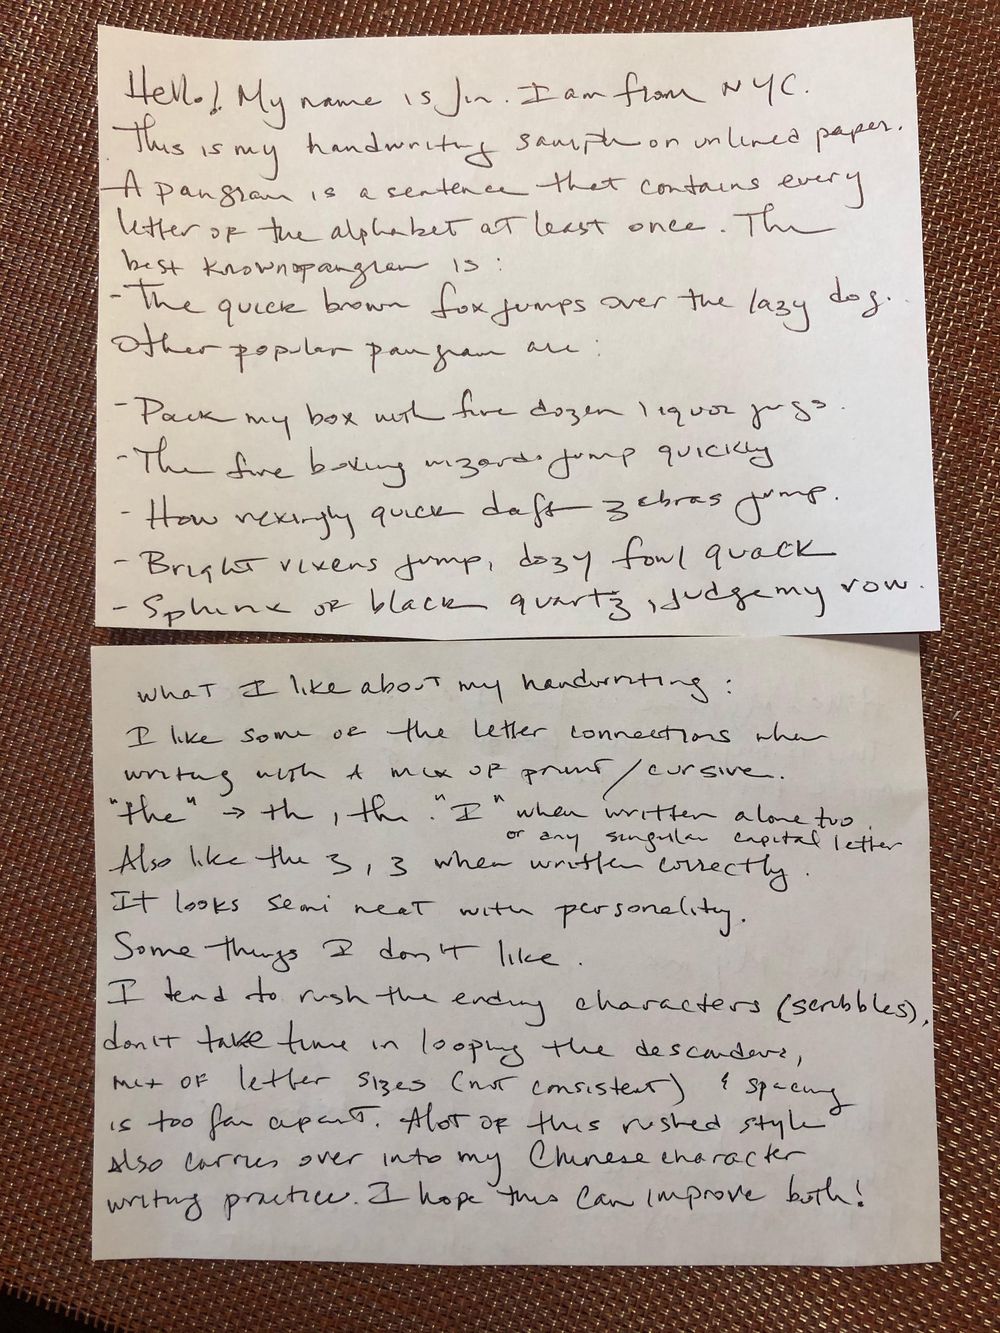 Hello! My name is Jin. I am from NYC.
This is my handwriting sample on unlined paper.
A pangram is a sentence that contains every
letter of the alphabet at least once. The
best known pangram is:
- The quick brown fox jumps over the lazy dog.
Other popular pangram are:
- Pack my box with five dozen liquor jugs.
- The five boxing wizards jump quickly
- How vexingly quick daft zebras jump.
- Bright vixens jump, dozy fowl quack
- Sphinx of black quartz, judge my vow.
What I like about my handwriting:
I like some of the letter connections when
writing with a mix of print/cursive.
"the" → th, the. "I" when written alone too.
or any singular capital letter
Also like the 3, 3 when written correctly.
It looks semi neat with personality.
Some things I don't like.
I tend to rush the ending characters (scribbles),
don't take time in looping the descenders,
mix of letter sizes (not consistent) & spacing
is too far apart. Alot of this rushed style
also carries over into my Chinese character
writing practice. I hope this can improve both!